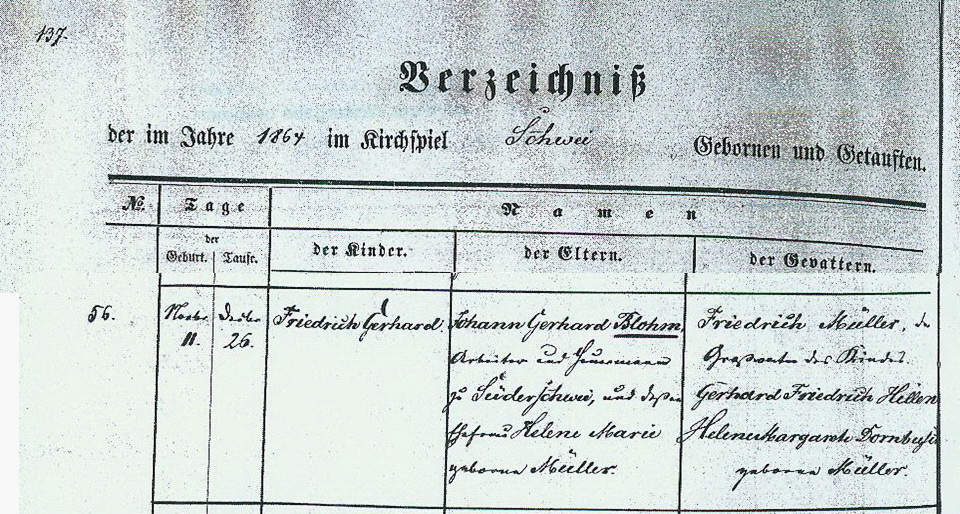 137.
Verzeichniß
der im Jahre 1864 im Kirchspiel Schwei Gebornen und Getauften.
No. Tage Namen
der
Geburt. Taufe. der Kinder. der Eltern. der Gevattern.
56. Novbr. Decbr. Friedrich Gerhard Johann Gerhard Blohm, Friedrich Müller, der
11. 26. Arbeiter und Heuermann Großvater des Kindes.
zu Süderschwei, und dessen Gerhard Friedrich Hellen
Ehefrau Helene Marie Helene Margareth Dornbusch
geborne Müller. geborne Müller.